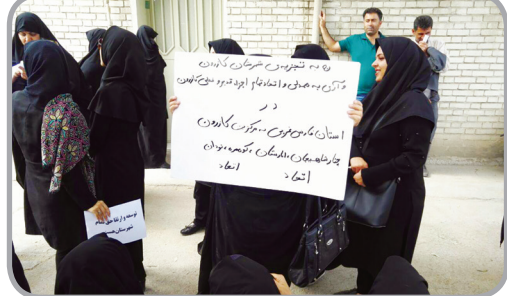 نه به تجزیه‌ی شهرستان کازرون
و آری به همدلی و اتحاد تمام اجزاء قدیم و فعلی کازرون
در
استان فارس غربی به مرکزیت کازرون
چنارشاهیجان، کوهمره، نودان
اتحاد اتحاد
توسعه و ارتقا حق تمام
شهرستان هست